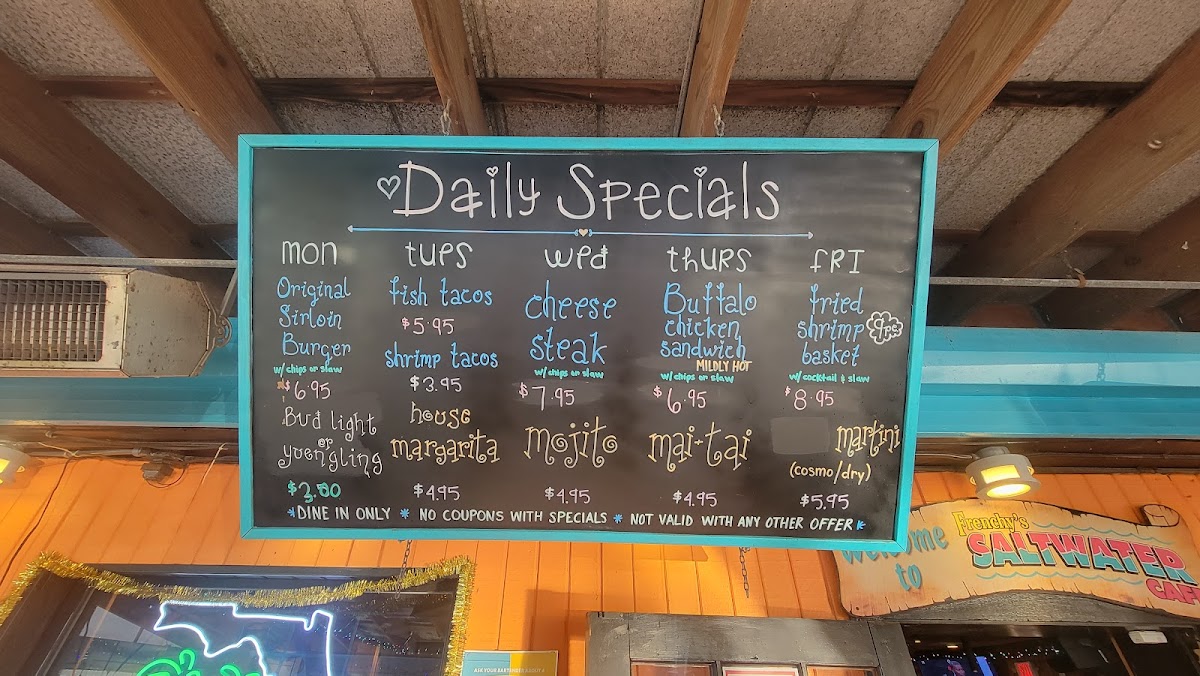 Daily Specials
MON
Original
Sirloin
Burger
w/ chips or slaw
$6.95
Bud light
or
yuengling
$3.50
tues
fish tacos
$5.95
shrimp tacos
$3.95
house
margarita
$4.95
wed
cheese
steak
w/ chips or slaw
$7.95
mojito
$4.95
thurs
Buffalo
chicken
sandwich
MILDLY HOT
w/ chips or slaw
$6.95
mai-tai
$4.95
fRI
fried
shrimp
basket
w/ cocktail & slaw
$8.95
martini
(cosmo/dry)
$5.95
*DINE IN ONLY * NO COUPONS WITH SPECIALS * NOT VALID WITH ANY OTHER OFFER*
Welcome
to
Frenchy's
SALTWATER
CAF
ASK YOUR BARTENDER ABOUT